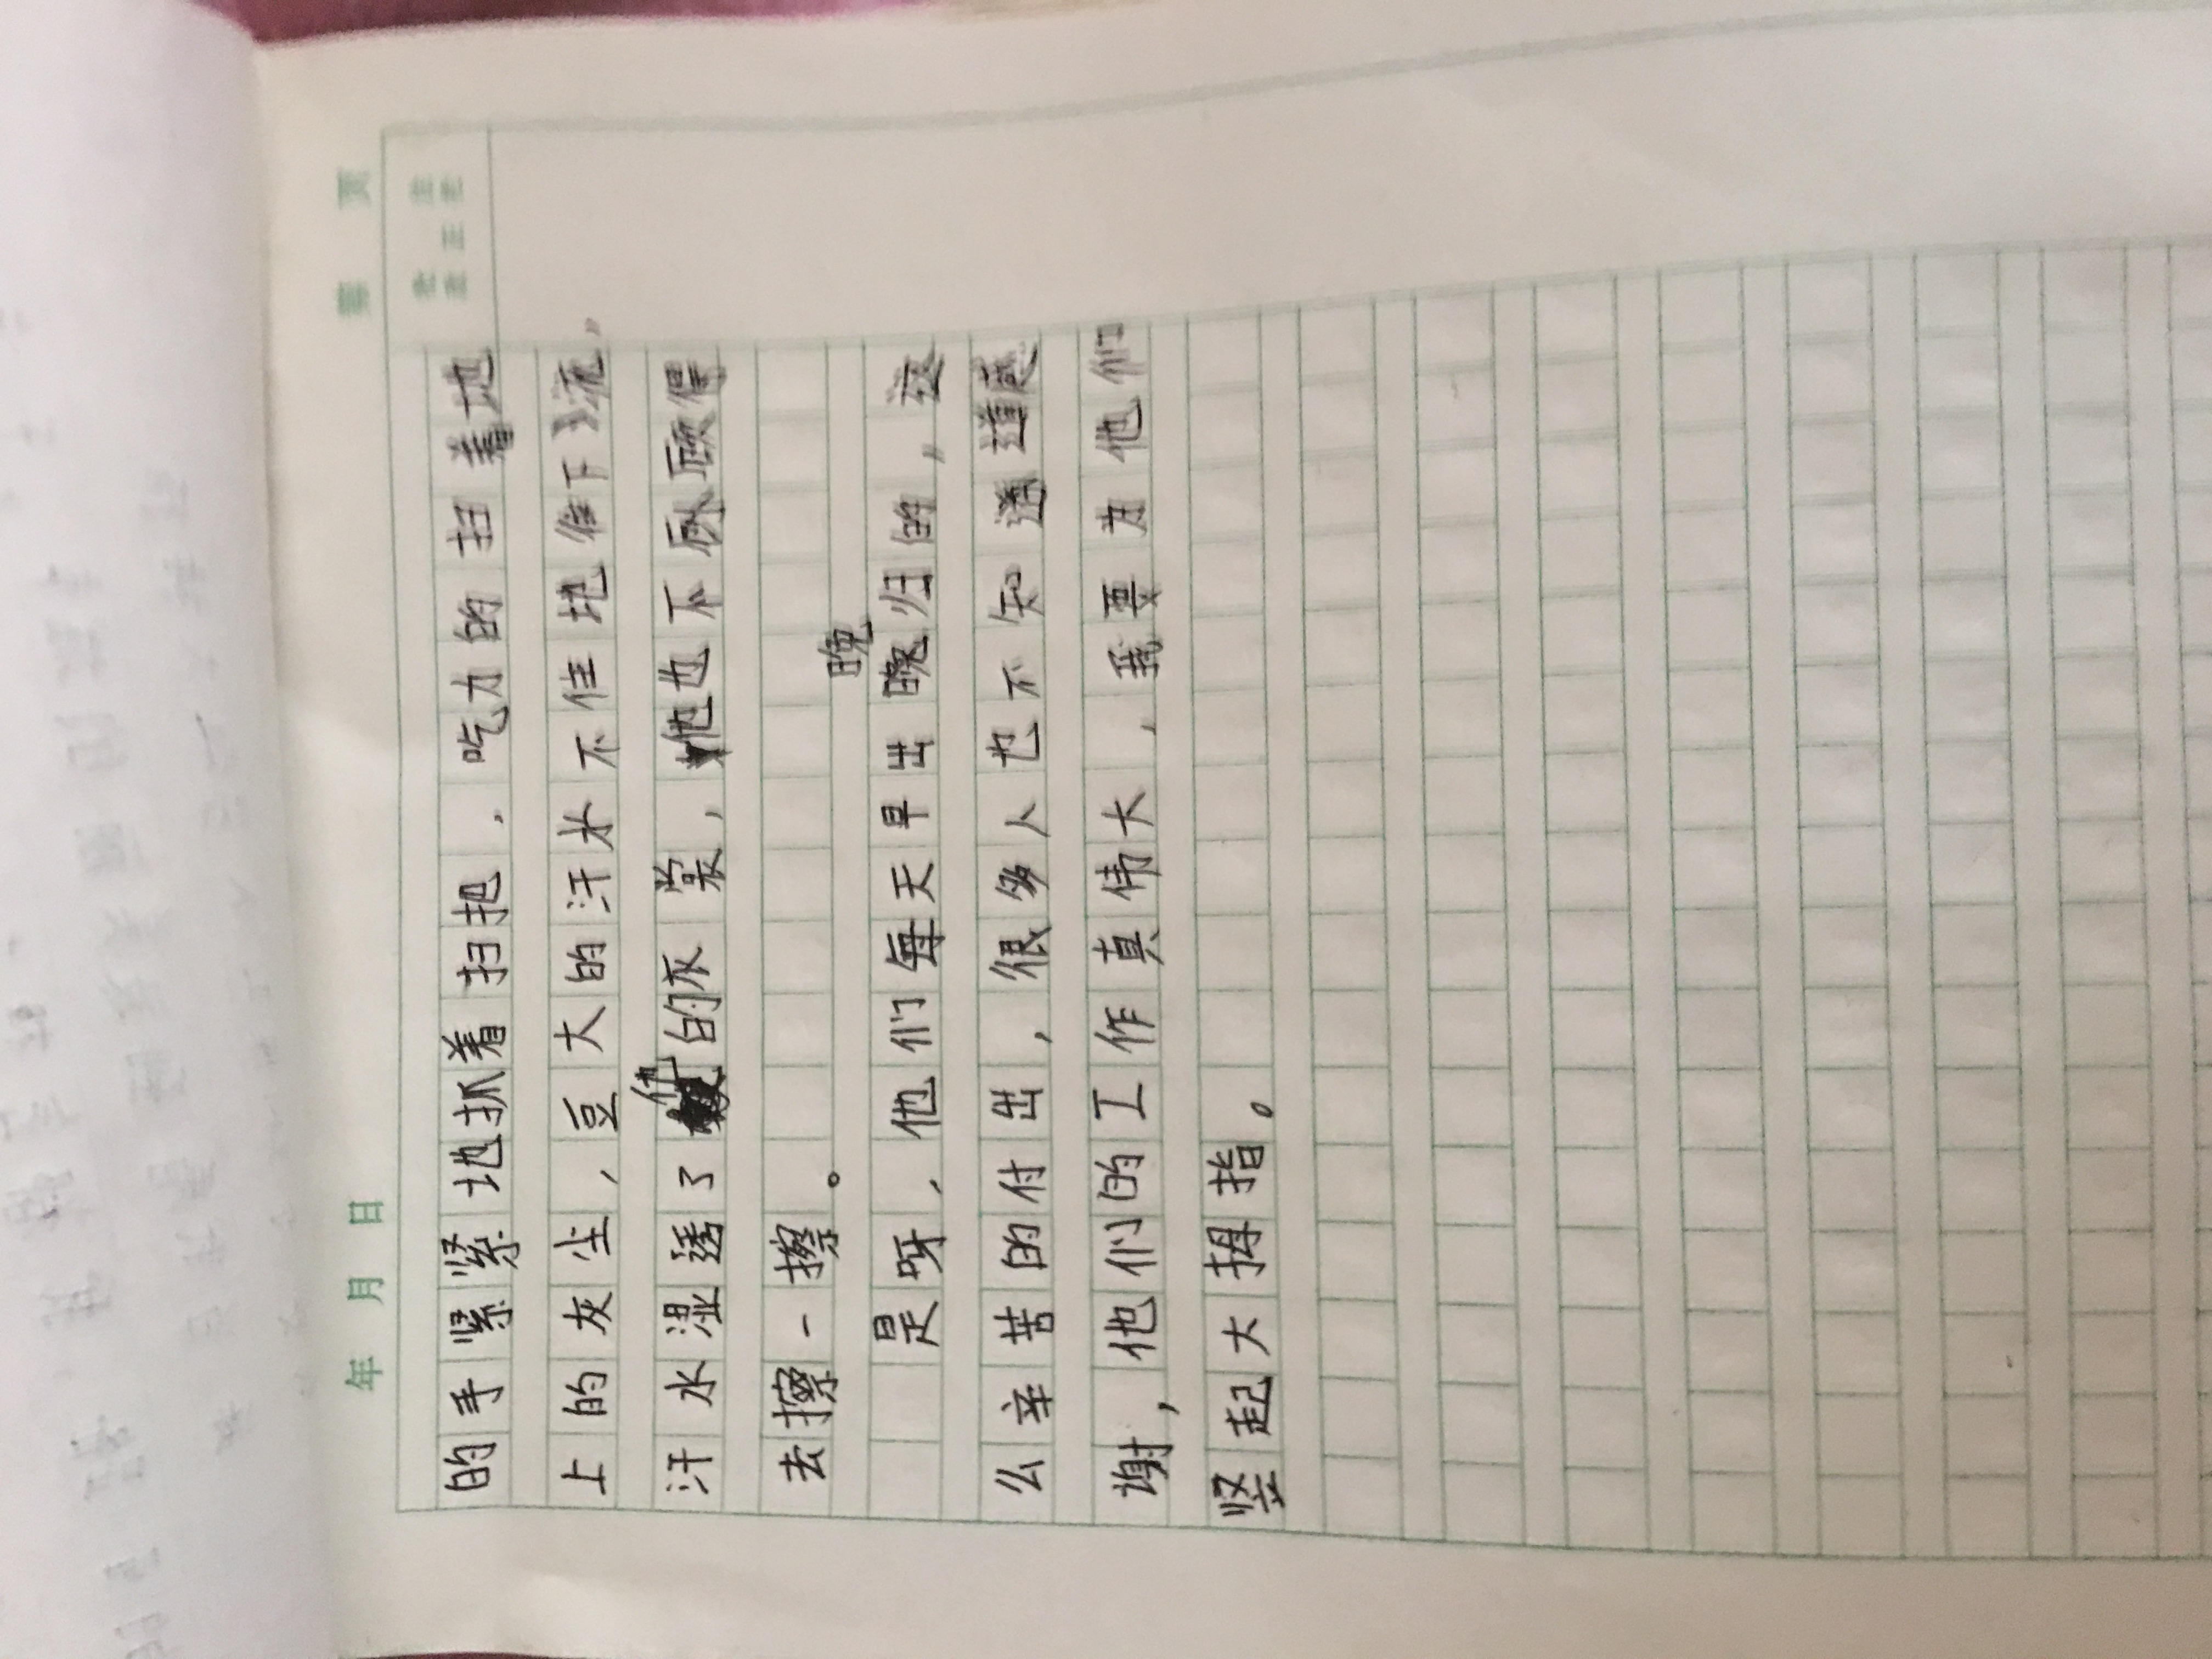 年 月 日 第 页
的手紧紧地抓着扫把，吃力的扫着地
上的灰尘，豆大的汗水不住地往下流，
汗水湿透了他的灰裳，他也不顾得
去擦一擦。
晚
是呀，他们每天早出晚归的，这
么辛苦的付出，很多人也不知道感
谢，他们的工作真伟大，我要为他们
竖起大拇指。